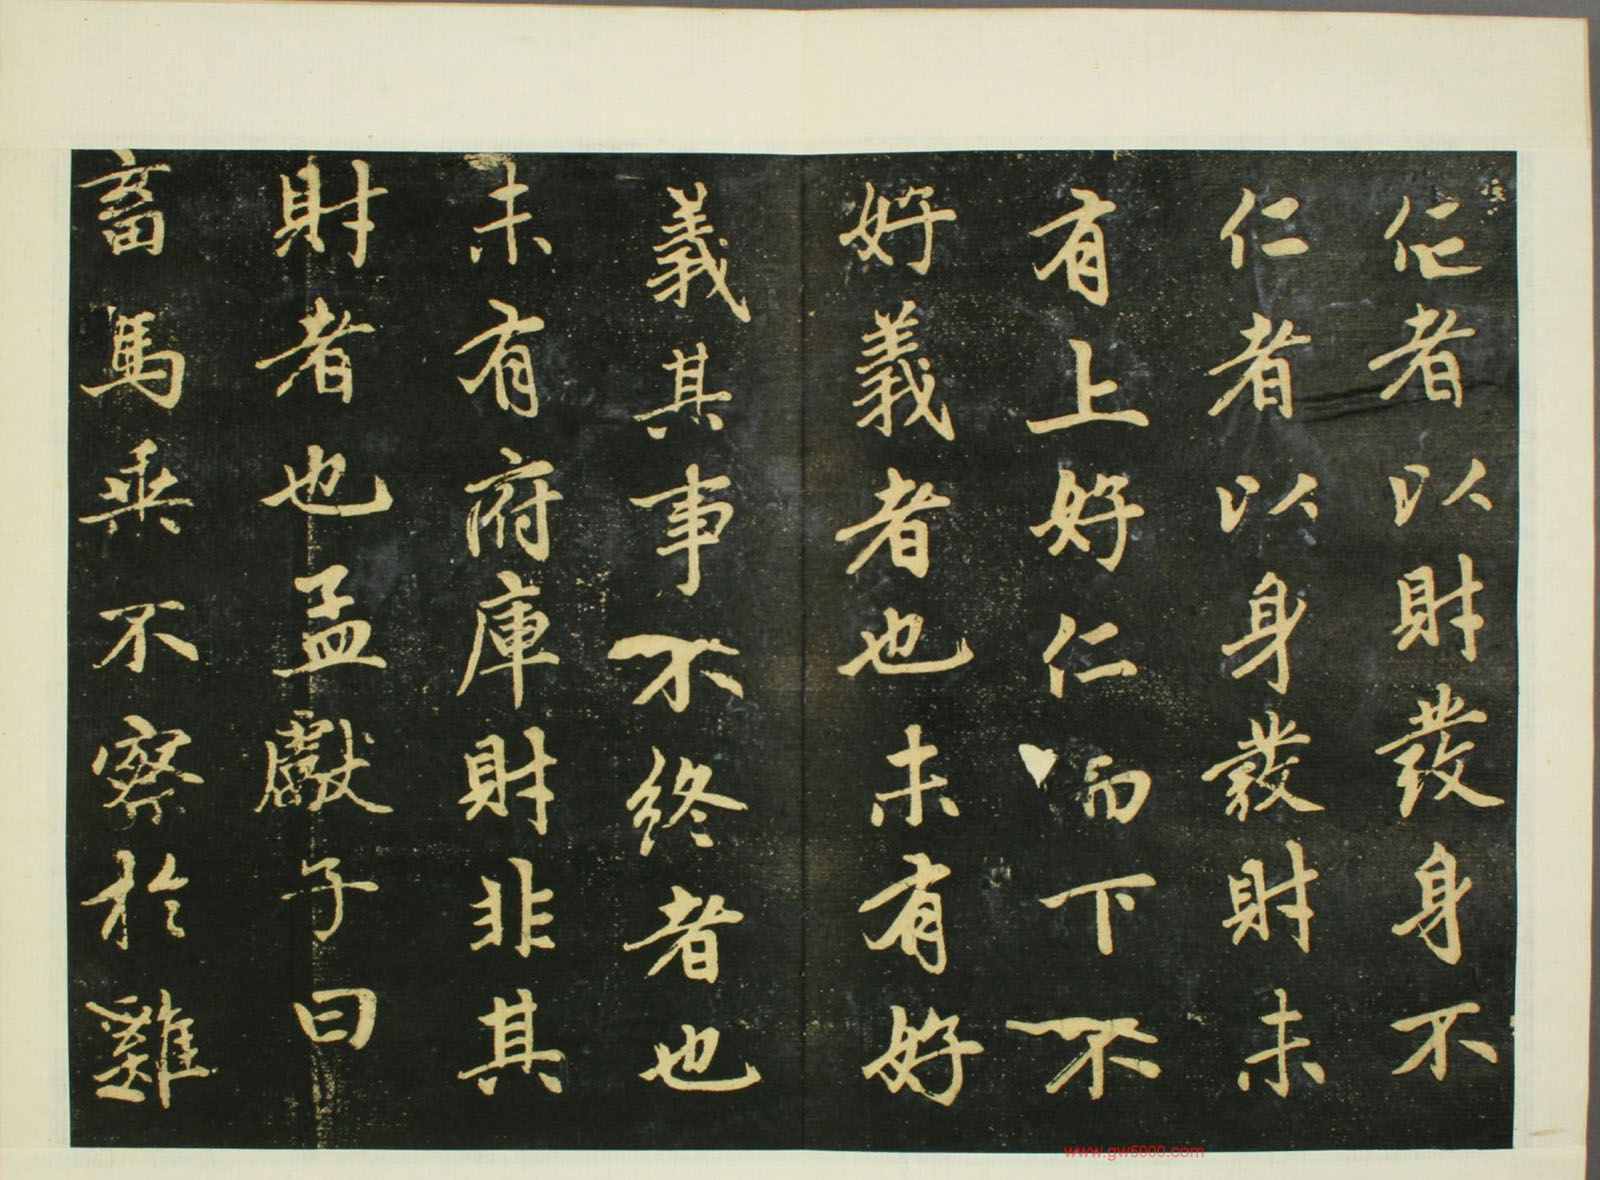 仁者以財發身不
仁者以身發財未
有上好仁而下不
好義者也未有好
義其事不終者也
未有府庫財非其
財者也孟獻子曰
畜馬乘不察於雞
www.gw5000.com